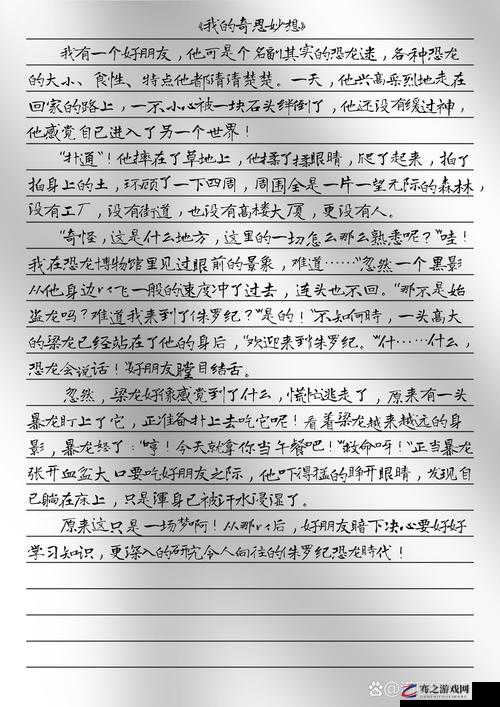 《我的奇思妙想》
我有一个好朋友，他可是个名副其实的恐龙迷，各种恐龙
的大小、食性、特点他都清清楚楚。一天，他兴高采烈地走在
回家的路上，一不小心被一块石头绊倒了，他还没有缓过神，
他感觉自己进入了另一个世界！
“扑通”！他摔在了草地上，他揉了揉眼睛，爬了起来，拍了
拍身上的土，环顾了一下四周，周围全是一片一望无际的森林，
没有工厂，没有街道，也没有高楼大厦，更没有人。
“奇怪，这是什么地方，这里的一切怎么那么熟悉呢？”哇！
我在恐龙博物馆里见过眼前的景象，难道……“忽然一个黑影
从他身边以飞一般的速度冲了过去，连头也不回。“那不是始
盗龙吗？难道我来到了侏罗纪？”是的！“不知何時，一头高大
的梁龙已经站在了他的身后，“欢迎来到侏罗纪。”什……什么，
恐龙会说话！”好朋友瞠目结舌。
忽然，梁龙好像感觉到了什么，慌忙逃走了，原来有一头
暴龙盯上了它，正准备扑上去吃它呢！看着梁龙越来越远的身
影，暴龙怒了：“哼！今天就拿你当午餐吧！”“救命呀！”正当暴龙
张开血盆大口要吃好朋友之际，他吓得猛的睁开眼睛，发现自
己躺在床上，只是渾身已被汗水浸湿了。
原来这只是一场梦啊！从那以后，好朋友暗下决心要好好
学习知识，更深入的研究令人向往的侏罗纪恐龙時代！
骞之游戏网